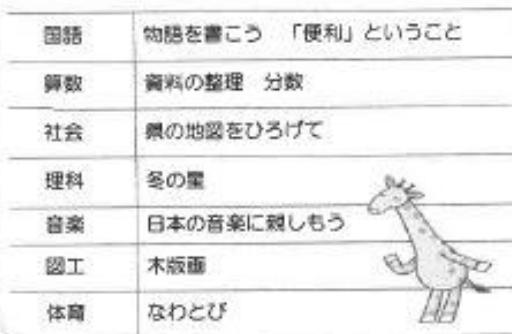 国語 物語を書こう 「便利」ということ
算数 資料の整理 分数
社会 県の地図をひろげて
理科 冬の星
音楽 日本の音楽に親しもう
図工 木版画
体育 なわとび